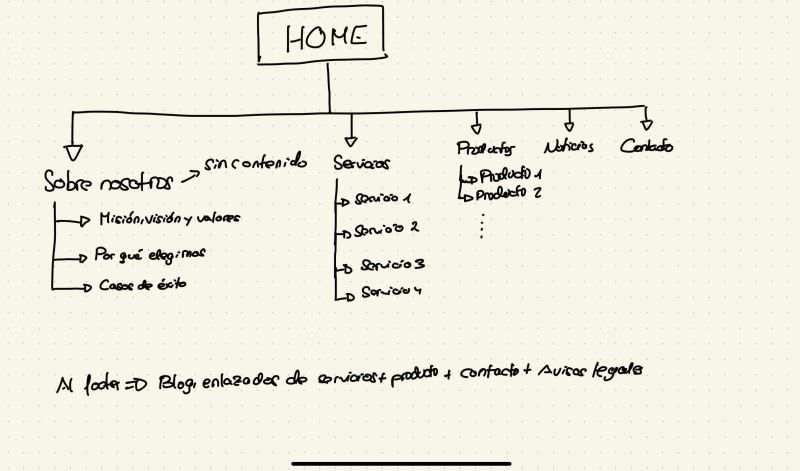 HOME
Sobre nosotros
sin contenido
Misión, visión y valores
Por qué elegirnos
Casos de éxito
Servicios
Servicio 1
Servicio 2
Servicio 3
Servicio 4
Productos
Producto 1
Producto 2
Noticias
Contacto
Al footer => Blog, enlazados de servicios + producto + contacto + Avisos legales